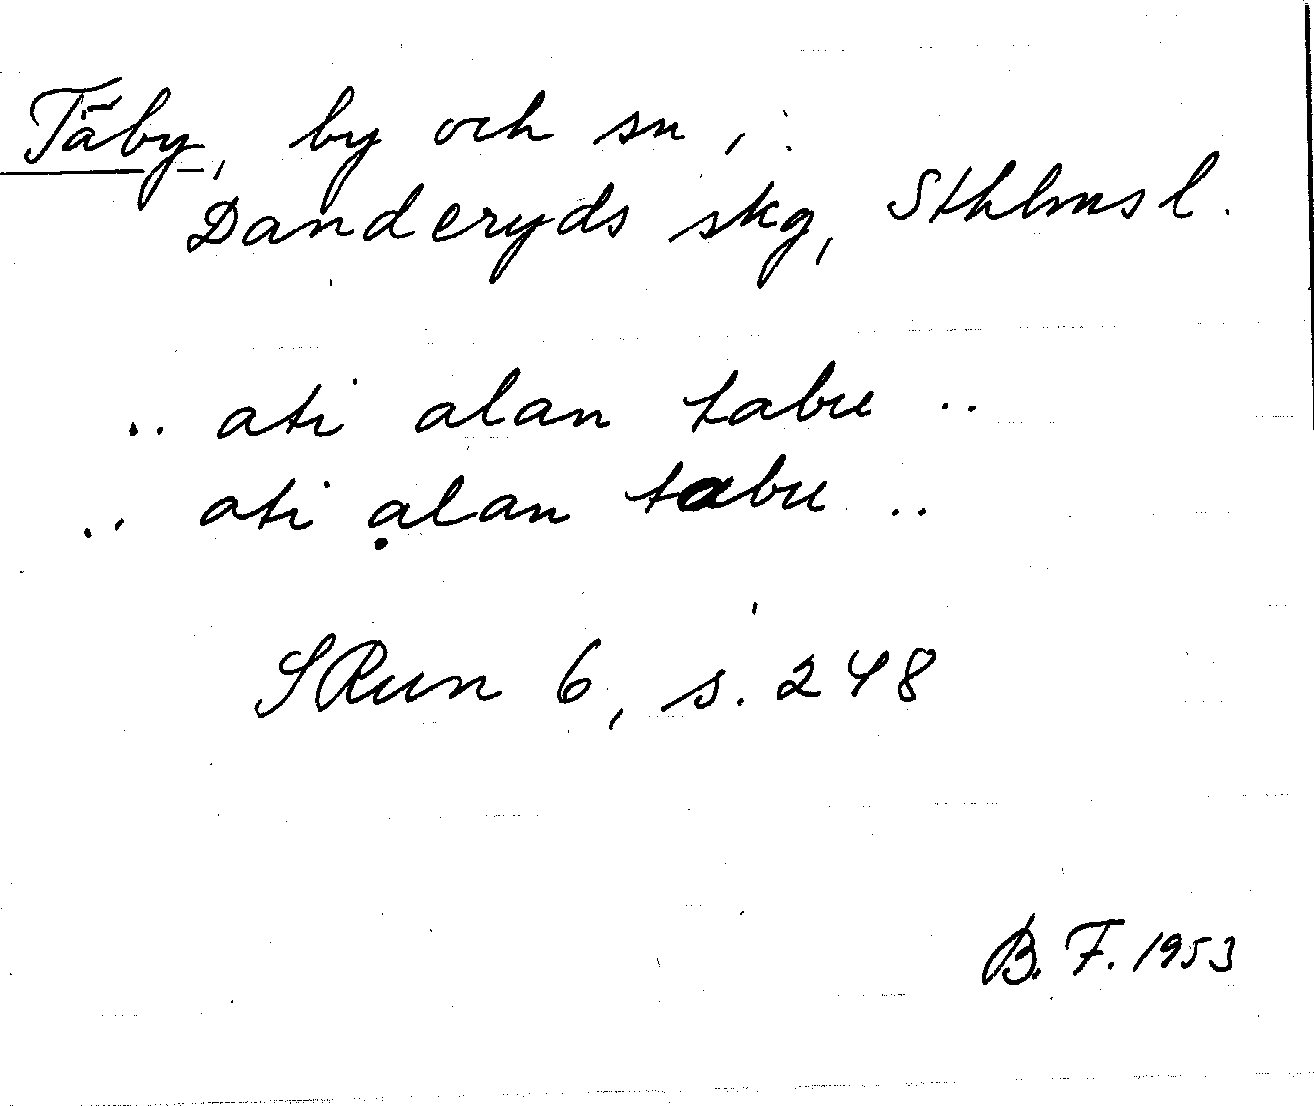 Täby, by och sn,
Danderyds skg, Sthlms l.
.. ati alan tabu ..
.. ati ạlan tabu ..
SRun 6, s. 248
B. F. 1953